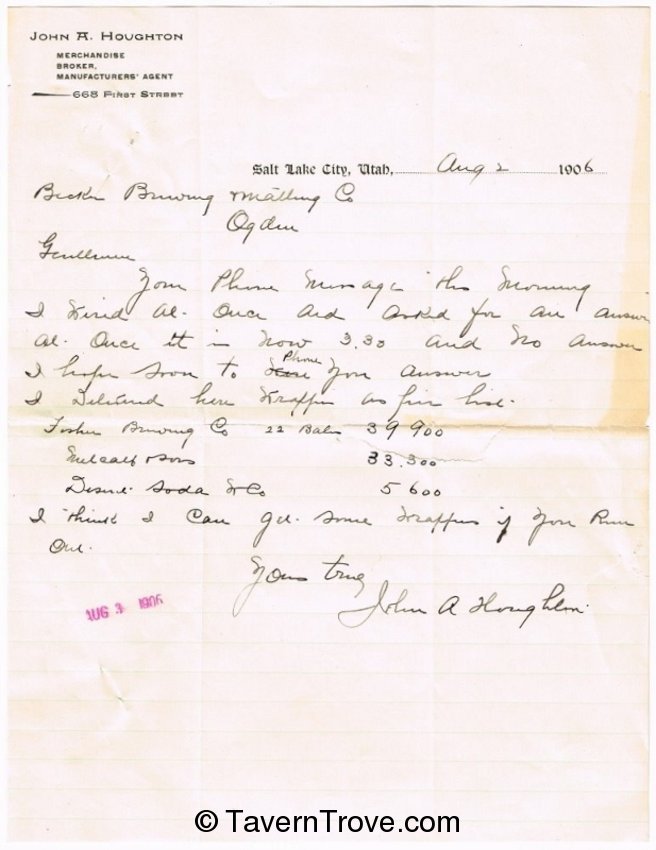 John A. Houghton
MERCHANDISE
BROKER,
MANUFACTURERS' AGENT
668 First Street
Salt Lake City, Utah, Aug 2 1906
Becker Brewing & Malting Co
Ogden
Gentlemen
Your Phone Message this Morning
I Wired at. Once and asked for an answer
at. Once it is Now 3.30 and No answer
I hope soon to Phone You answer
I Delivered here Wrappers as per list.
Fisher Brewing Co 22 Bales 39 900
Metcalf & Sons 33.300
Desert Soda W Co 5 600
I think I can get some Wrappers if You Run
Out.
Yours truly
John A Houghton.
AUG 3 1906
© TavernTrove.com